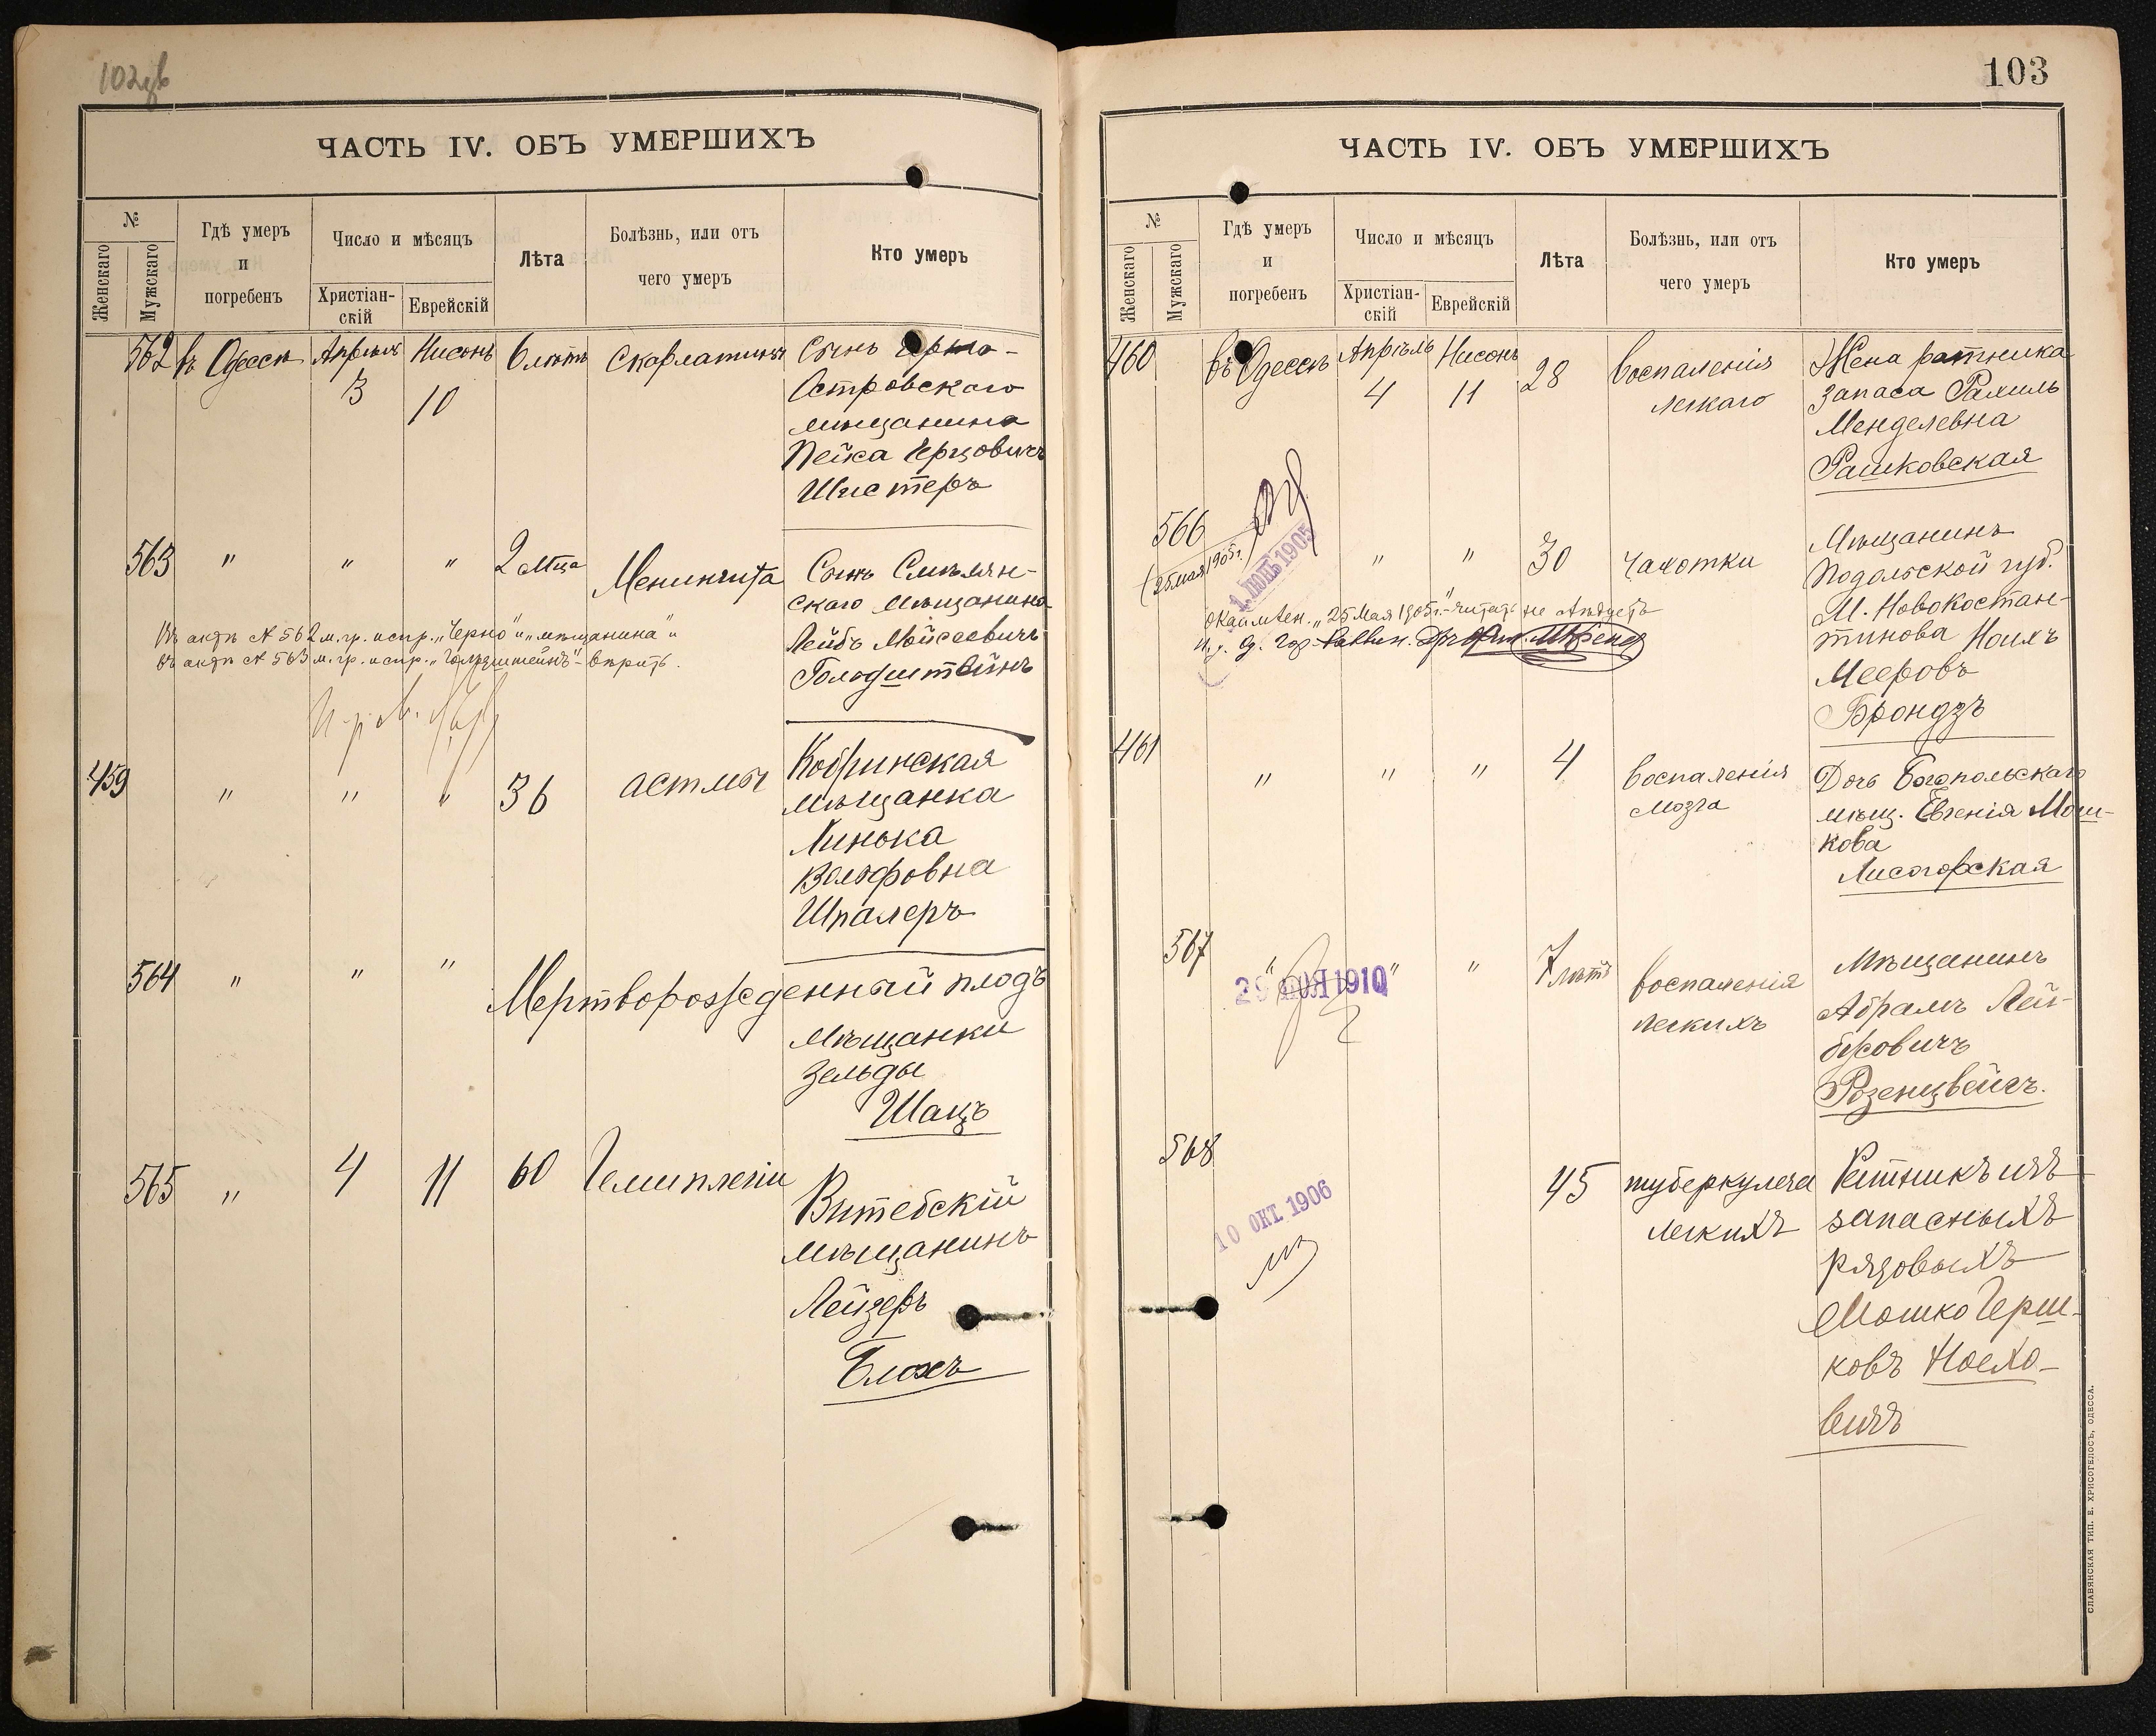 102
ЧАСТЬ IV. ОБЪ УМЕРШИХЪ
№
Женскаго
Мужскаго
Гдѣ умеръ
и
погребенъ
Число и мѣсяцъ
Христіан-
скій
Еврейскій
Лѣта
Болѣзнь, или отъ
чего умеръ
Кто умеръ
562 въ Одессѣ Апрѣль Нисонъ 6 лѣтъ Скарлатины Сынъ Черно-
3 10 Островскаго
мѣщанина
Пейса Герцовичъ
Шистеръ
563 " " " 2 мѣца Менингита Сынъ Смѣлян-
скаго мѣщанина
Лейбъ Мойсеевичъ
Гольдштейнъ
Въ актѣ № 562 м. гр. испр. „Черно" и „мѣщанина" и
въ актѣ № 563 м. гр. испр. „Гольдштейнъ" - вѣрить.
459 " " " 36 астмы Кобринская
мѣщанка
Линька
Вольфовна
Шпалеръ
564 " " " Мертворожденный плодъ
мѣщанки
Зельды
Шацъ
565 " 4 11 60 Гемиплегіи Витебскій
мѣщанинъ
Лейзеръ
Блохъ
103
ЧАСТЬ IV. ОБЪ УМЕРШИХЪ
№
Женскаго
Мужскаго
Гдѣ умеръ
и
погребенъ
Число и мѣсяцъ
Христіан-
скій
Еврейскій
Лѣта
Болѣзнь, или отъ
чего умеръ
Кто умеръ
460 въ Одессѣ Апрѣль Нисонъ 28 воспаленія Жена ратника
4 11 легкаго запаса Рахиль
Менделевна
Рашковская
566 " " 30 чахотки Мѣщанинъ
(25 мая 1905 г.)
1. ІЮН. 1905
Подольской губ.
М. Новокостан-
тинова Ноихъ
Мееровъ
Брондзъ
„25 Мая 1905 г." - читать не слѣдуетъ
461 " " " 4 воспаленія Дочь Богопольскаго
мозга мѣщ. Евгенія Мош-
кова
Лисогорская
567 " " " 7 лѣтъ воспаленія Мѣщанинъ
1910
легкихъ Абрамъ Лей-
бковичъ
Розенцвейгъ.
568 45 туберкулеза Ратникъ изъ
10 ОКТ. 1906
легкихъ запасныхъ
рядовыхъ
Мошко Герш-
ковъ Носхо-
вичъ
СЛАВЯНСКАЯ ТИП. Е. ХРИСОГЕЛОСЪ, ОДЕССА.